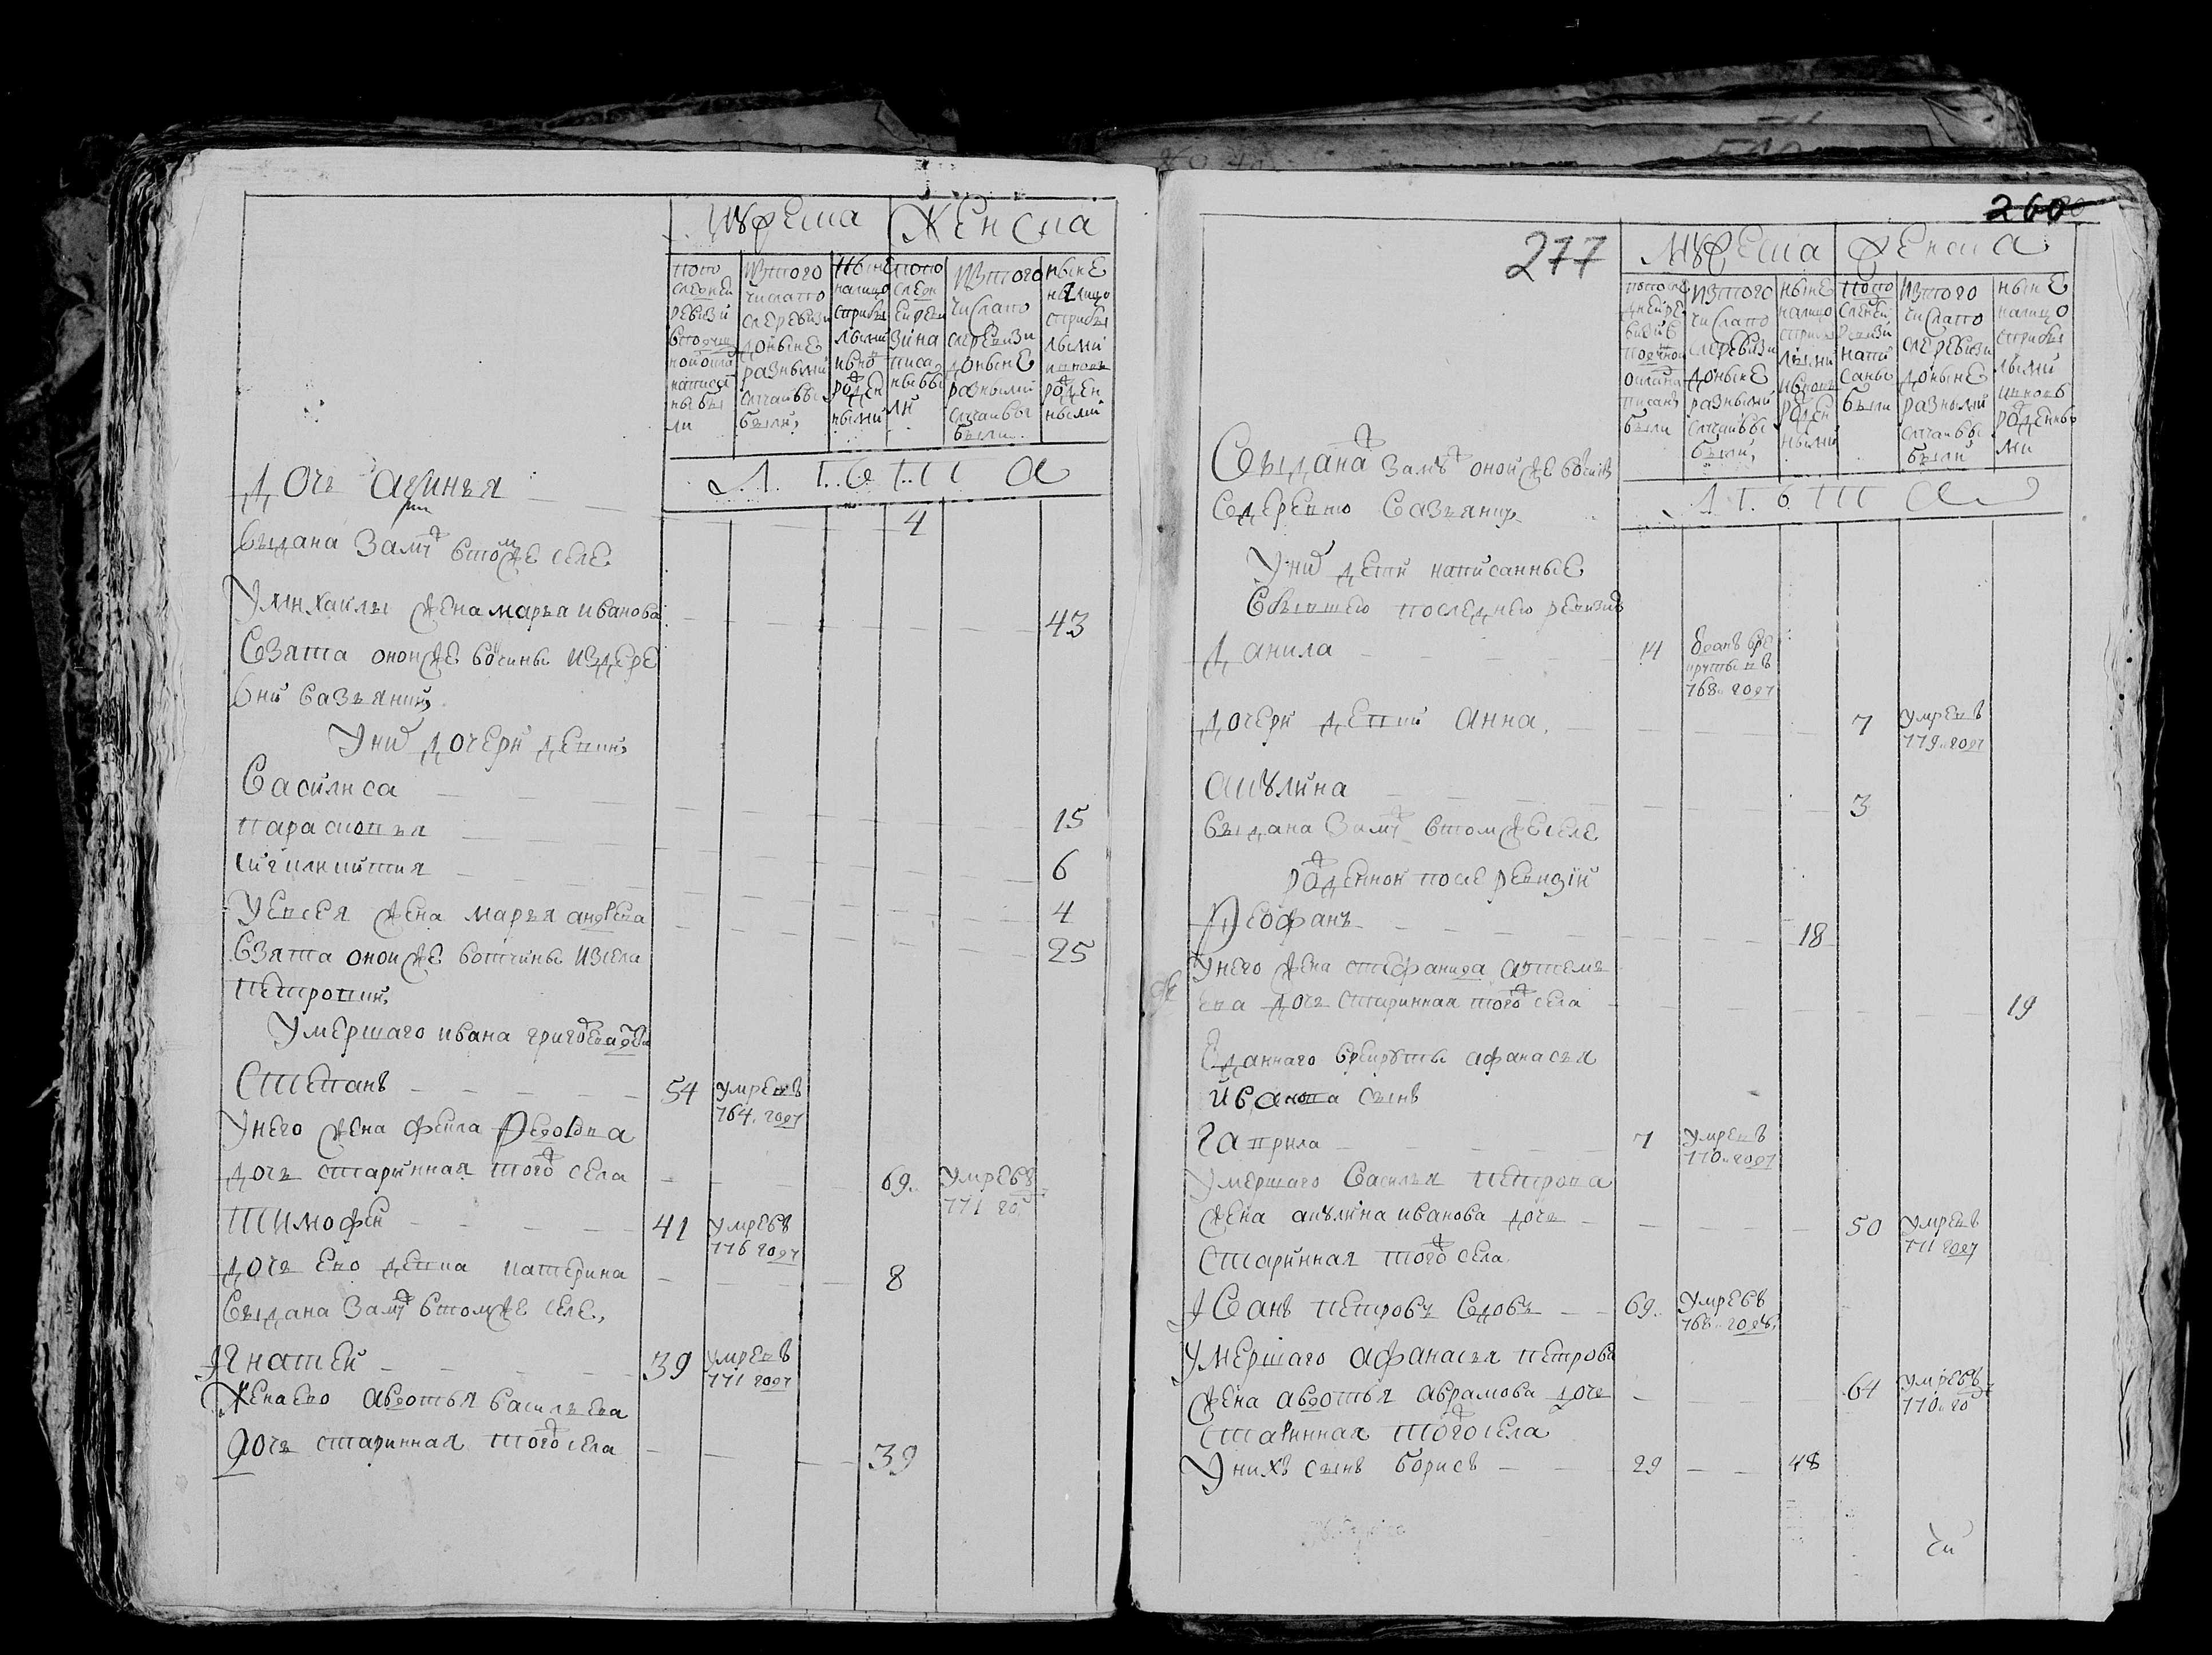 мужеска
женска
попо
следней
ревизи
написа
ны бы
ли
изтого
числапо
следревизи
доныне
разными
случаивы
были,
ныне
налицо
сприбы
лыми
ивнов
рожден
ными
попо
следн
ей реви
зи на
писа,
ны бы
ли
изтого
числапо
следревизи
доныне
разными
случаивы
были
ныне
налицо
сприбы
лыми
ивновь
рожден
ными
Л Е Т А
дочь афинья
4
выдана замуж втомже селе
умихаилы жена марья иванова
43
взята онойже вотчины издере
вни
уних дочери девки,
василиса
15
парасковья
6
4
уевсея жена марья андреева
25
взята онойже вотчины изсела
петровки,
умершаго ивана григорьева дети
степанъ
54
умревъ
764. году
унего жена фекла федорова
дочь старинная тогож села
69.
умревъ
771 го
тимофей
41
умревъ
776 году
дочь ево девка катерина
8
выдана замуж втомже селе,
игнатей
39
умревъ
771 году
жена ево авдотья васильева
дочь старинная тогож села
39
260
277
мужеска
женска
попосле
дней ре
визи
написаны
были
изтого
числапо
следревизи
доныне
разными
случаивы
были,
ныне
налицо
сприбы
лыми
ивновь
рожден
ными
попо
следней
ревизи
напи
саны
были
изтого
числапо
следревизи
доныне
разными
случаивы
были
ныне
налицо
сприбы
лыми
ивновь
рожденны
ми
Л Е Т А
выдана замуж онойже вотчины
вдеревню
уних дети написанные
вбывшею последнею ревизию
данила
14
взятъ вре
круты въ
768. году
дочери девки анна,
7
умревъ
779. году
акулина
3
выдана замуж втомже селе
рожденной после ревизи
феофанъ
18
унего жена стефанида артемь
ева дочь старинная тогож села
19
отданнаго врекруты афанасья
иванова сынъ
гаврила
7
умревъ
770. году
умершаго василья петрова
жена акулина иванова дочь
50
умревъ
771 году
старинная тогож села
иванъ петровъ вдовъ
69.
умревъ
768. году,
умершаго афанасья петрова
жена авдотья аврамова дочь
64
умревъ
770. го
старинная тогож села
унихъ сынъ борисъ
29
48